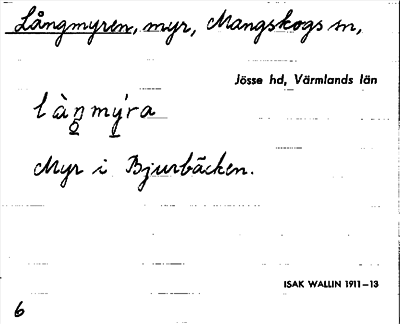 Långmyren, myr, Mangskogs sn,
Jösse hd, Värmlands län
làŋmýra
Myr i Bjurbäcken.
ISAK WALLIN 1911–13
6